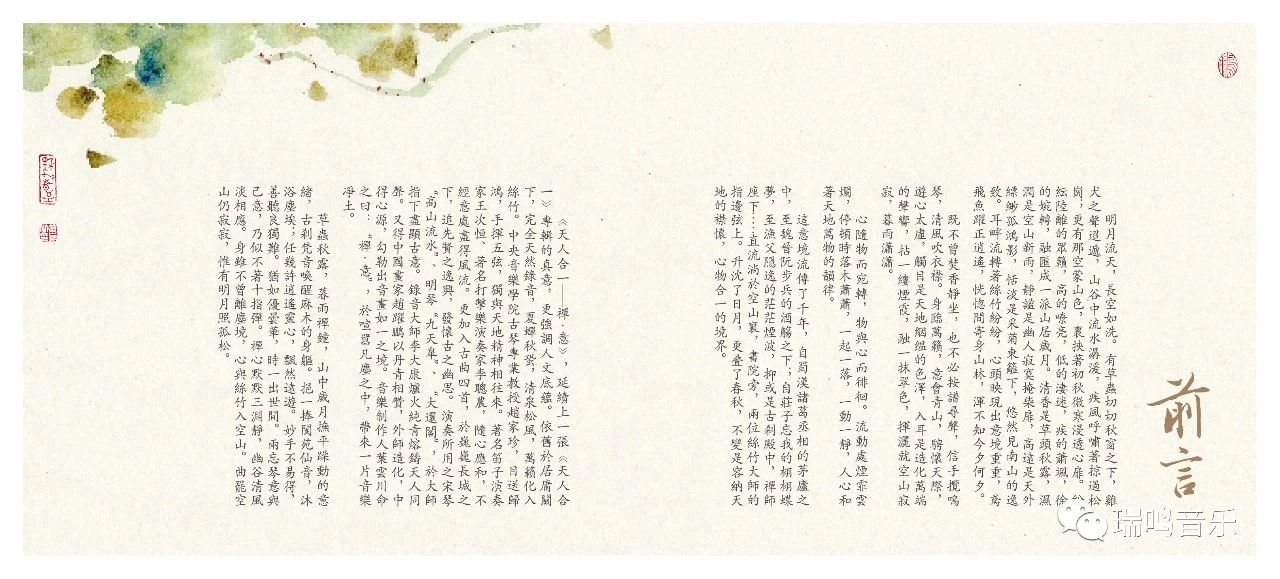 前言
明月流天，長空如洗。有草蟲切切秋窗之下，雞
犬之聲迢遞，山谷中流水潺湲，疾風呼嘯著掠過松
岡，更有那空蒙山色，裹挾著初秋微寒浸透心扉。
紜陸離的眾籟，高的嘹亮，低的淒迷，疾的蕭颯，徐
的婉轉，融匯成一派山居歲月。清香是草頭秋露，濕
潤是空山新雨，靜謐是幽人寂寞掩柴扉，高遠是天外
縹緲孤鴻影，恬淡是采菊東籬下，悠然見南山的逸
致。耳畔流轉著絲竹紛紛，心頭映現出意境重重，鳶
飛魚躍正逍遙，恍惚間寄身山林，渾不知今夕何夕。
既不曾焚香靜坐，也不必按譜尋聲，信手攬鳴
琴，清風吹衣襟。身臨萬籟，意會青山，騁懷天際，
遊心太虛，觸目是天地絪縕的色澤，入耳是造化萬端
的聲響，拈一縷煙霞，融一抹翠色，揮灑就空山寂
寂，暮雨瀟瀟。
心隨物而宛轉，物與心而徘徊。流動處煙霏雲
爛，停頓時落木蕭蕭，一起一落，一動一靜，人心和
著天地萬物的韻律。
這意境流傳了千年，自蜀漢諸葛丞相的茅廬之
中，至魏晉阮步兵的酒觴之下；自莊子忘我的栩栩蝶
夢，至漁父隱逸的茫茫煙波，抑或是古剎殿中，禪師
座下…直流淌於空山裏，書院旁，兩位絲竹大師的
指邊弦上。升沈了日月，更疊了春秋，不變是容納天
地的襟懷，心物合一的境界。
《天人合一——禪·意》，延續上一張《天人合
一》專輯的真意，更強調人文底蘊。依舊於居庸關
下，完全天然錄音，夏蟬秋蛩，清泉松風，萬籟化入
絲竹。中央音樂學院古琴專業教授趙家珍，目送歸
鴻，手揮五弦，獨與天地精神相往來。著名笛子演奏
家王次恒、著名打擊樂演奏家李聰農，隨心應和，不
經意處盡得風流。更加入古曲四首，於巍巍長城之
下，追先賢之逸興，發懷古之幽思。演奏所用之宋琴
“高山流水”、明琴“九天皋”、“大還閣”，於大師
指下盡顯古意。錄音大師李大康爐火純青熔鑄天人同
聲。又得中國畫家趙躍鵬以丹青相贊，外師造化，中
得心源，勾勒出音畫如一之境。音樂制作人葉雲川命
之曰：“禪·意”，於喧囂凡塵之中，帶來一片音樂
凈土。
草蟲秋露，暮雨禪鐘，山中歲月撫平躁動的意
緒，古刹梵音喚醒麻木的身軀。挹一捲閬苑仙音，沐
浴塵埃；任幾許逍遙靈心，飄然遠遊。妙手不易得，
善聽良獨難。猶如優曇華，時一出世間。兩忘琴意與
己意，乃似不著十指彈。禪心默默三淵靜，幽谷清風
淡相應。身雖不曾離塵境，心與絲竹入空山。曲罷空
山仍寂寂，惟有明月照孤松。
瑞鸣音乐